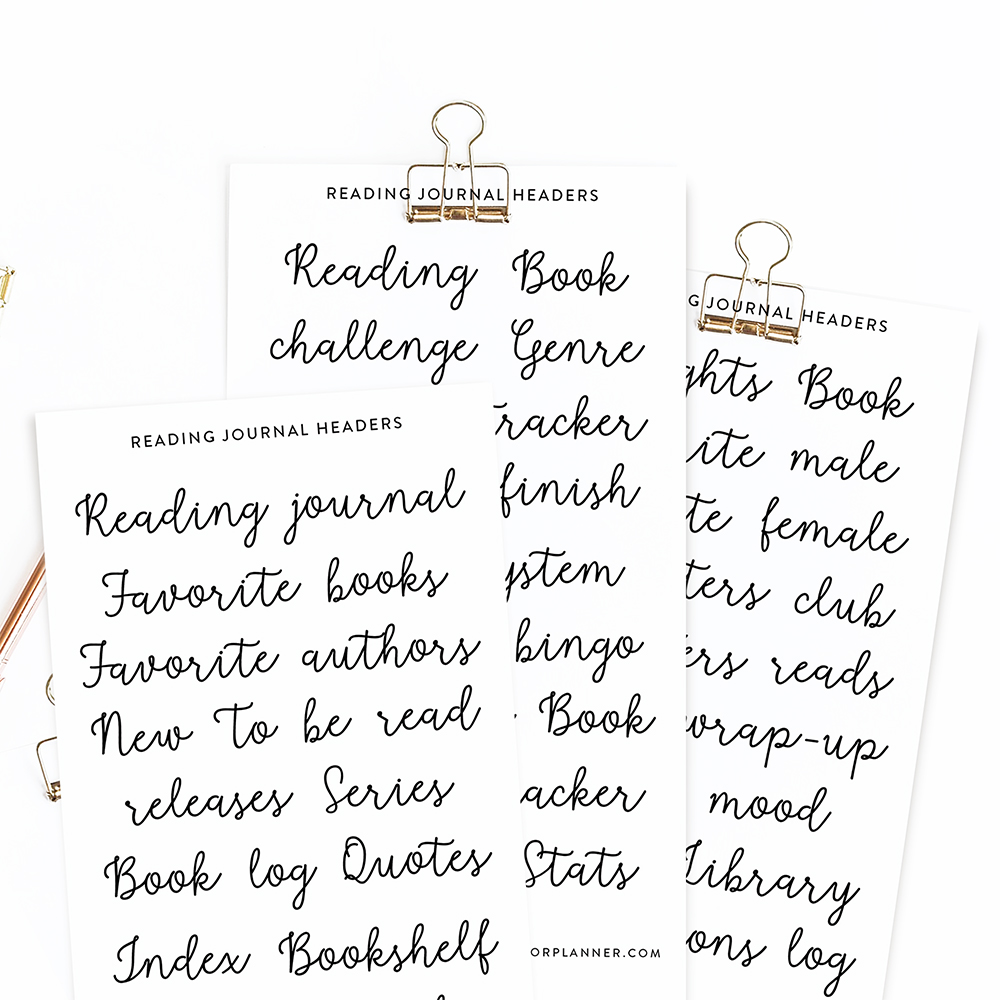 READING JOURNAL HEADERS
Reading journal
Favorite books
Favorite authors
New To be read
releases Series
Book log Quotes
Index Bookshelf
READING JOURNAL HEADERS
Reading Book
challenge Genre
racker
finish
ystem
bingo
Book
acker
Stats
ORPLANNER.COM
G JOURNAL HEADERS
ghts Book
ite male
te female
ters club
ers reads
wrap-up
mood
Library
ons log